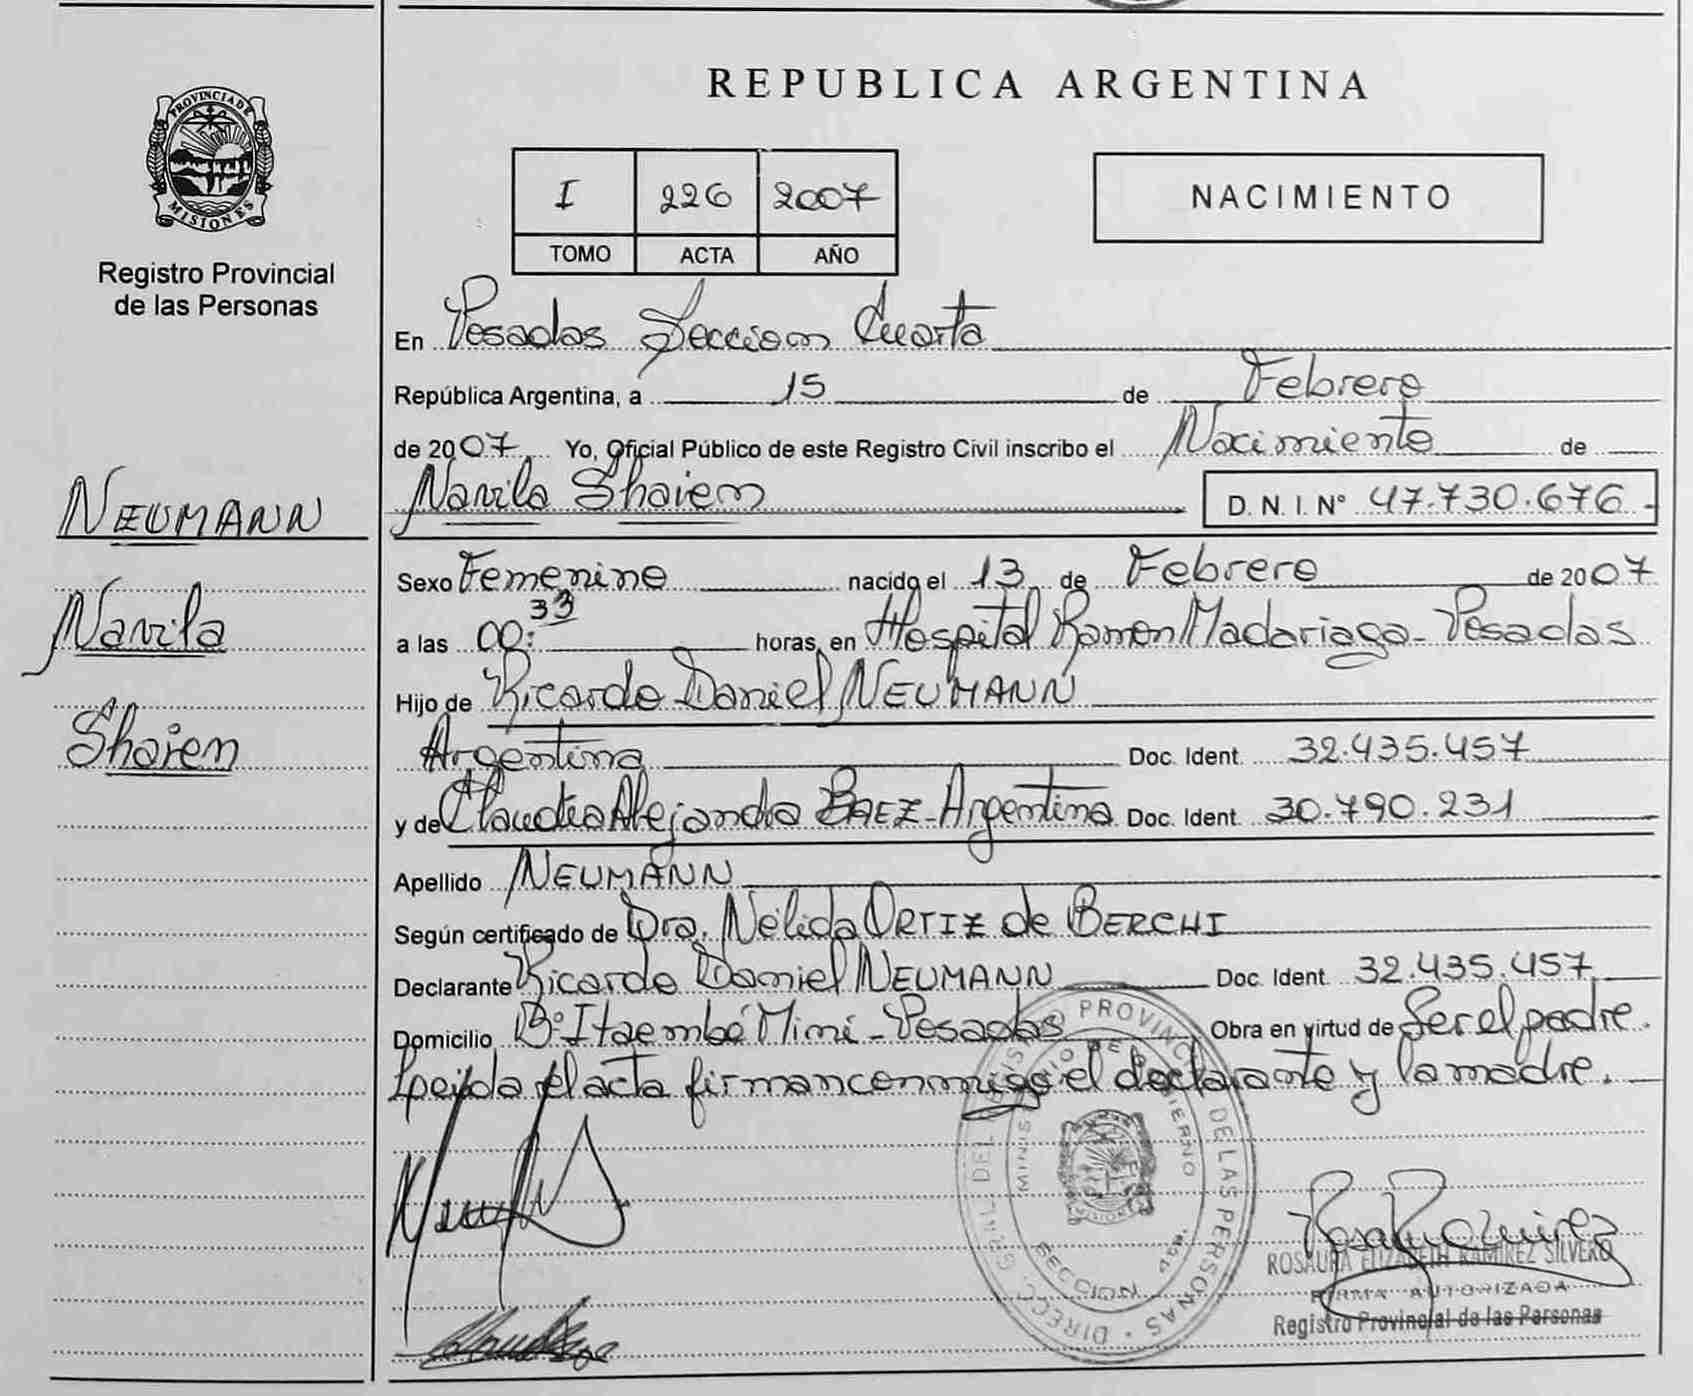 PROVINCIA DE
MISIONES
Registro Provincial
de las Personas
NEUMANN
Navila
Shaien
REPUBLICA ARGENTINA
I 226 2007
TOMO ACTA AÑO
NACIMIENTO
En Posadas Seccion Cuarta
República Argentina, a 15 de Febrero
de 2007 Yo, Oficial Público de este Registro Civil inscribo el Nacimiento de
Navila Shaien D. N. I. N° 47.730.676
Sexo Femenino nacido el 13 de Febrero de 2007
a las 00:33 horas, en Hospital Ramon Madariaga - Posadas
Hijo de Ricardo Daniel NEUMANN
Argentina Doc. Ident. 32.435.457
y de Claudia Alejandra BAEZ - Argentina Doc. Ident. 30.790.231
Apellido NEUMANN
Según certificado de Dra. Nélida ORTIZ de BERCHI
Declarante Ricardo Daniel NEUMANN Doc. Ident. 32.435.457
Domicilio B° Itaembé Miní - Posadas Obra en virtud de Ser el padre.
Leida el acta firman conmigo el declarante y la madre.
DIRECC. GRAL. DEL REGISTRO PROVINCIAL DE LAS PERSONAS
MINISTERIO DE GOBIERNO
SECCION 4ta
MISIONES
ROSAURA ELIZABETH RAMIREZ SILVERO
FIRMA AUTORIZADA
Registro Provincial de las Personas